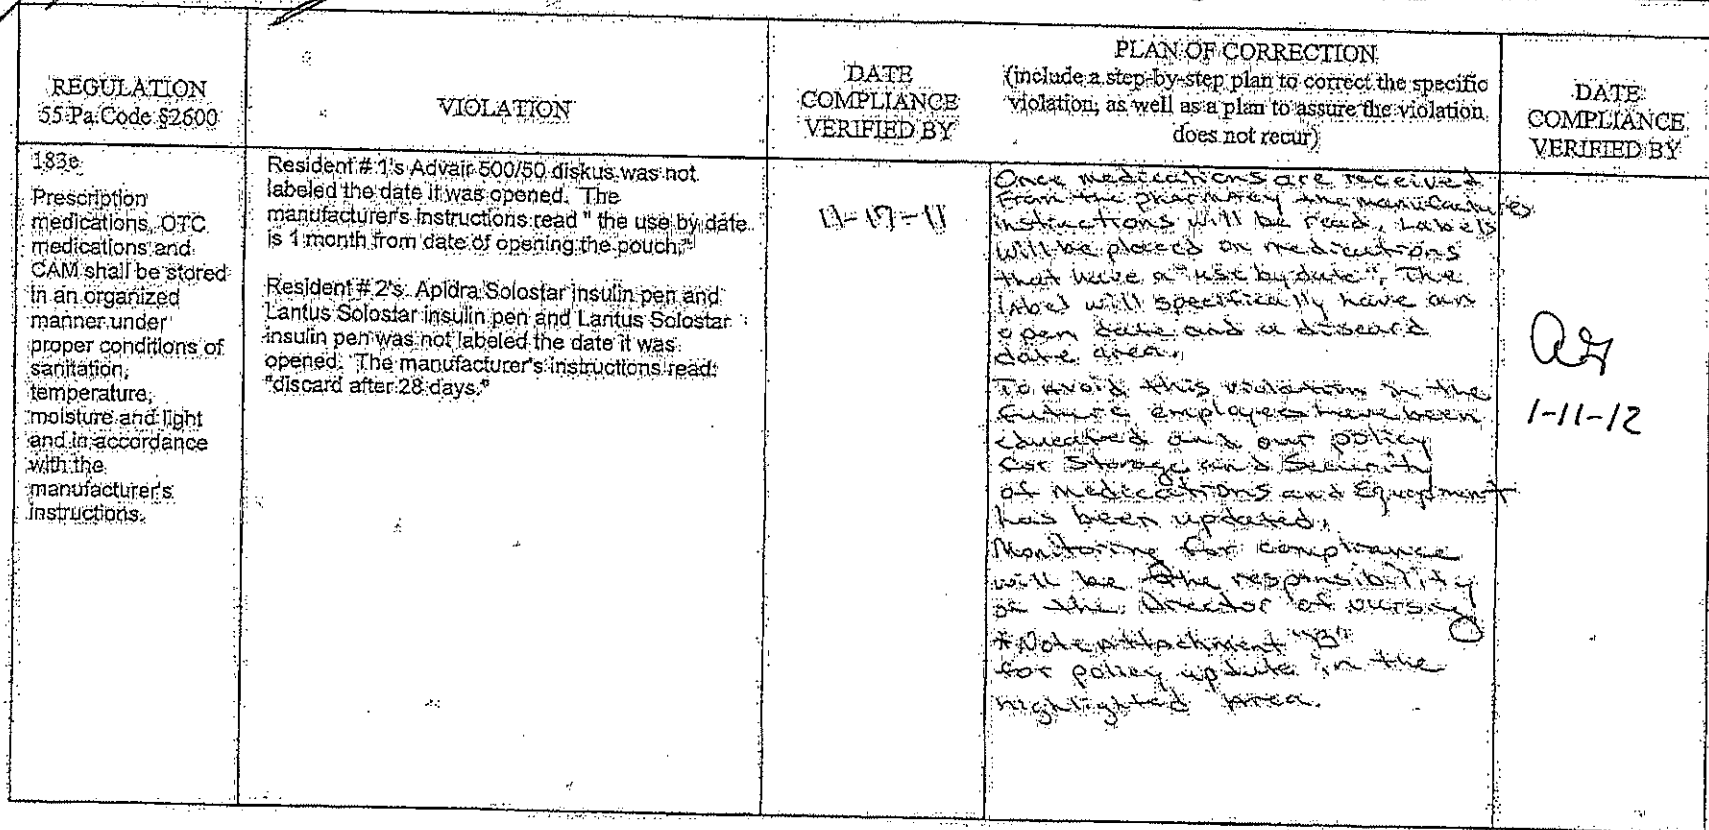 REGULATION
55 Pa. Code §2600
VIOLATION
DATE
COMPLIANCE
VERIFIED BY
PLAN OF CORRECTION
(include a step-by-step plan to correct the specific
violation, as well as a plan to assure the violation
does not recur)
DATE
COMPLIANCE
VERIFIED BY
183e
Prescription
medications, OTC
medications and
CAM shall be stored
in an organized
manner under
proper conditions of
sanitation,
temperature,
moisture and light
and in accordance
with the
manufacturer's
instructions.
Resident # 1's Advair 500/50 diskus was not
labeled the date it was opened. The
manufacturer's instructions read " the use by date
is 1 month from date of opening the pouch."
Resident # 2's Apidra Solostar insulin pen and
Lantus Solostar insulin pen and Lantus Solostar
insulin pen was not labeled the date it was
opened. The manufacturer's instructions read:
"discard after 28 days."
11-17-11
Once medications are received
from the pharmacy the manufactures
instructions will be read. Labels
will be placed on medications
that have a "use by date". The
label will specifically have an
open date and a discard
date area.
To avoid this violation in the
future employees have been
educated and our policy
for Storage and Security
of Medications and Equipment
has been updated.
Monitoring for compliance
will be the responsibility
of the Director of nursing
*Note Attachment "B"
for policy update in the
highlighted area.
1-11-12